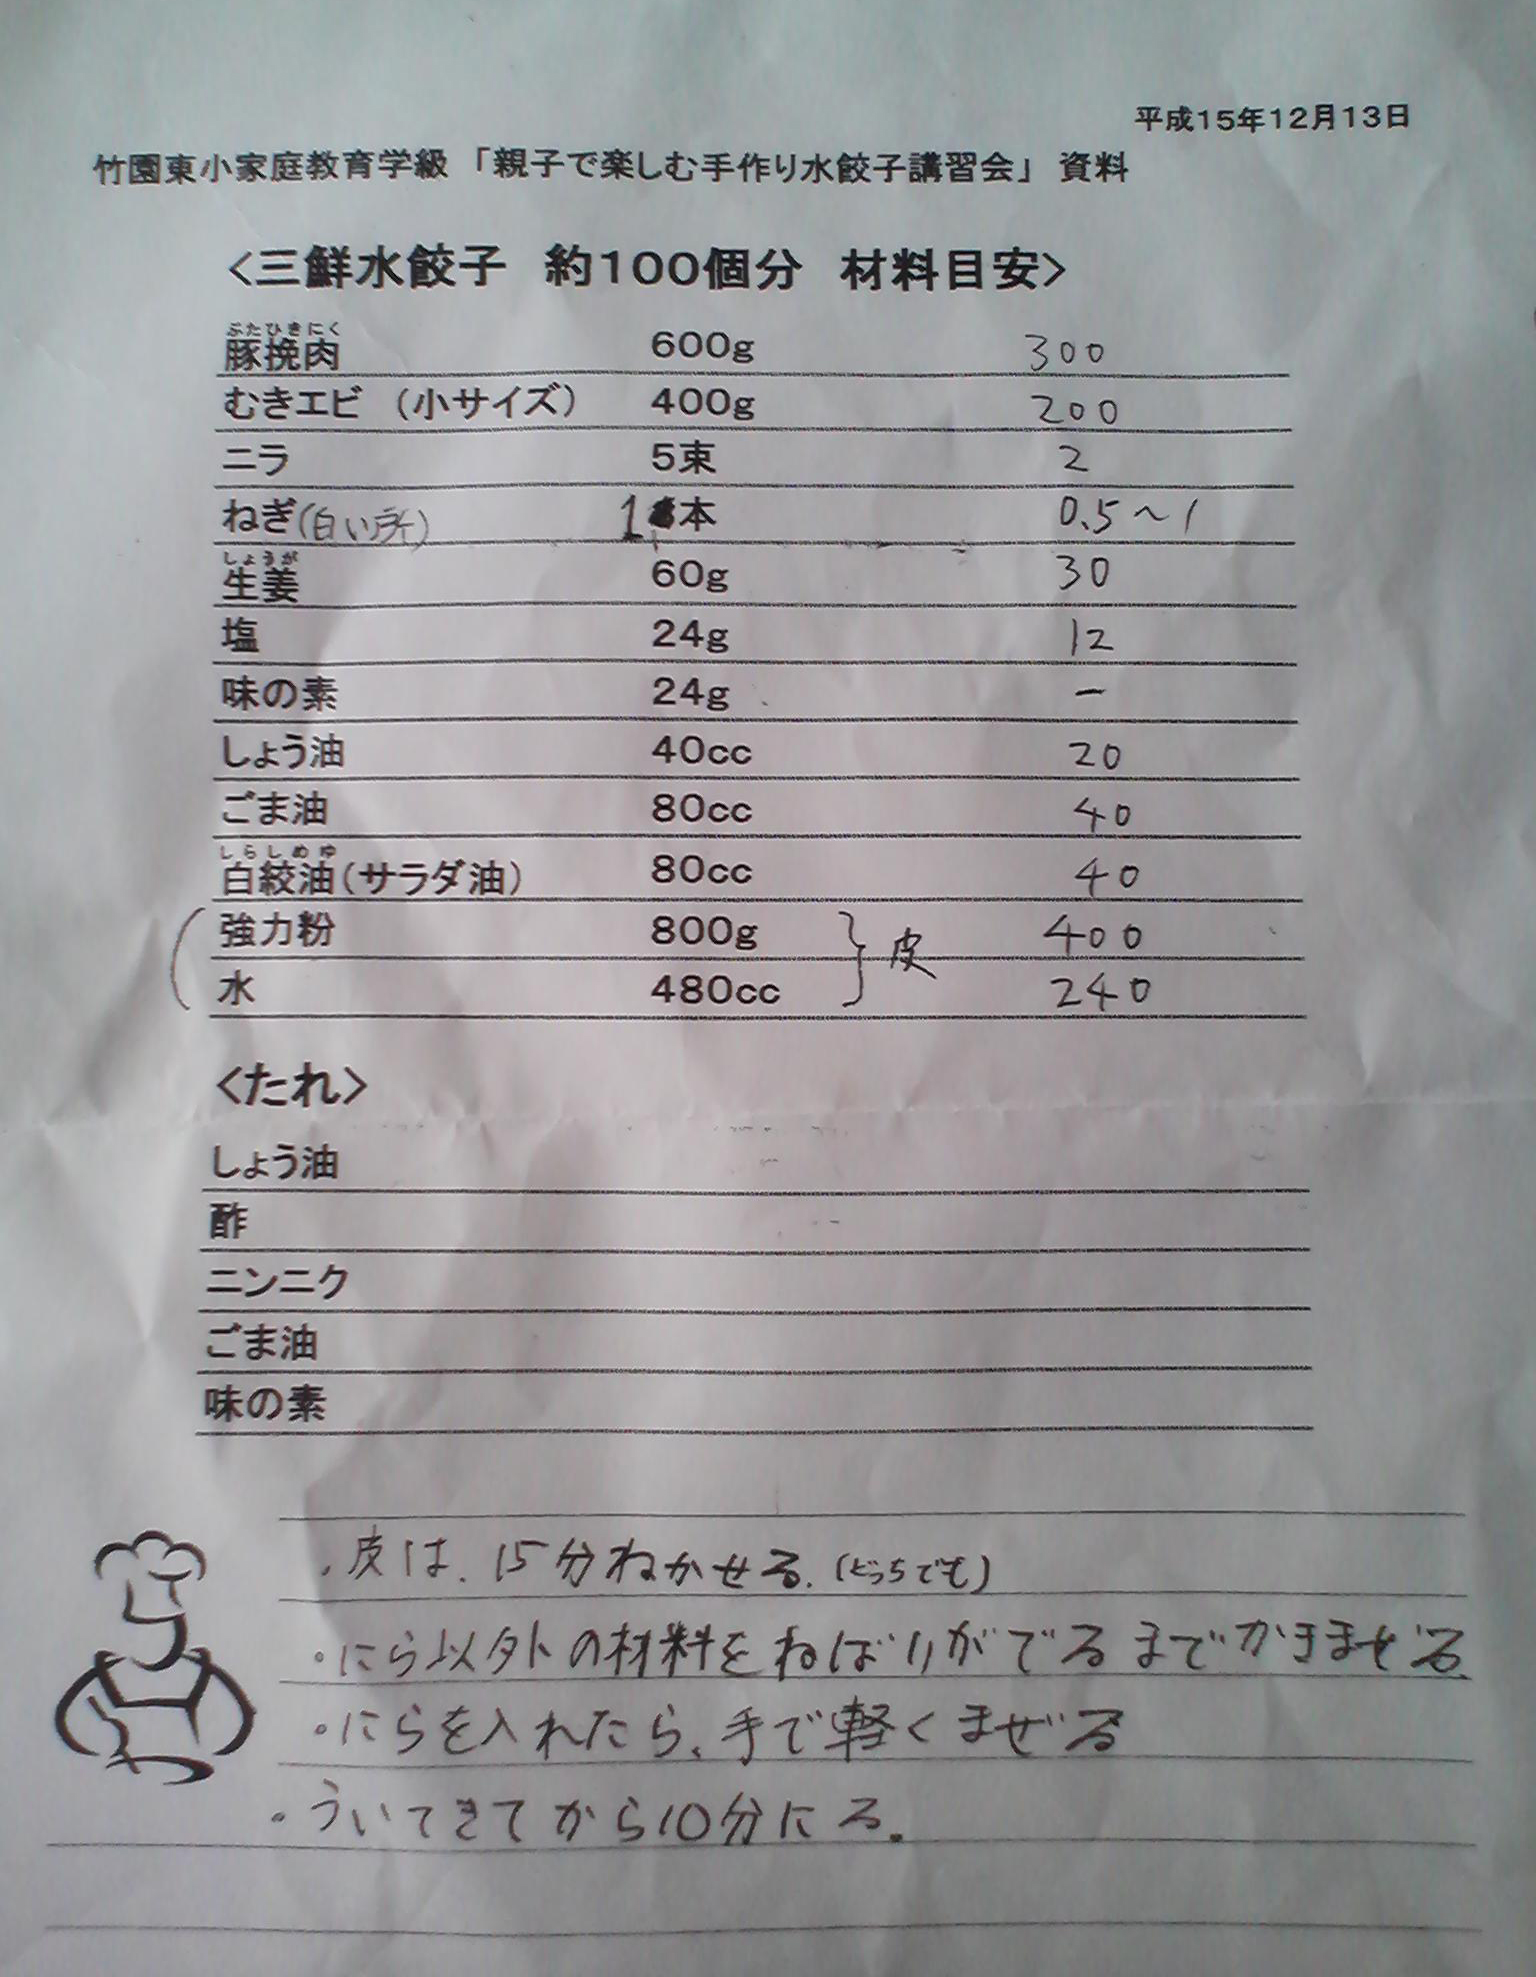 平成15年12月13日
竹園東小家庭教育学級「親子で楽しむ手作り水餃子講習会」 資料
<三鮮水餃子 約100個分 材料目安>
ぶたひきにく
豚挽肉 600g 300
むきエビ (小サイズ) 400g 200
ニラ 5束 2
ねぎ(白い所) 1本 0.5〜1
しょうが
生姜 60g 30
塩 24g 12
味の素 24g ー
しょう油 40cc 20
ごま油 80cc 40
しらしめゆ
白絞油(サラダ油) 80cc 40
強力粉 800g 皮 400
水 480cc 240
<たれ>
しょう油
酢
ニンニク
ごま油
味の素
・皮は、15分ねかせる。(どっちでも)
・にら以外の材料をねばりがでるまでかきまぜる。
・にらを入れたら、手で軽くまぜる
・ういてきてから10分にる。